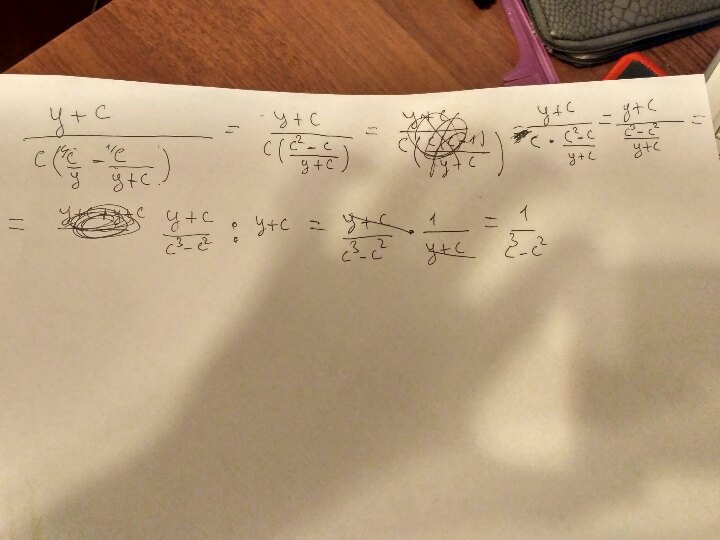 \frac{y+c}{c(\frac{c}{y} - \frac{c}{y+c})} = \frac{y+c}{c(\frac{c^2-c}{y+c})} = = \frac{y+c}{c \cdot \frac{c^2-c}{y+c}} = \frac{y+c}{\frac{c^3-c^2}{y+c}} =
= \frac{y+c}{c^3-c^2} : y+c = \frac{y+c}{c^3-c^2} \cdot \frac{1}{y+c} = \frac{1}{c^3-c^2}